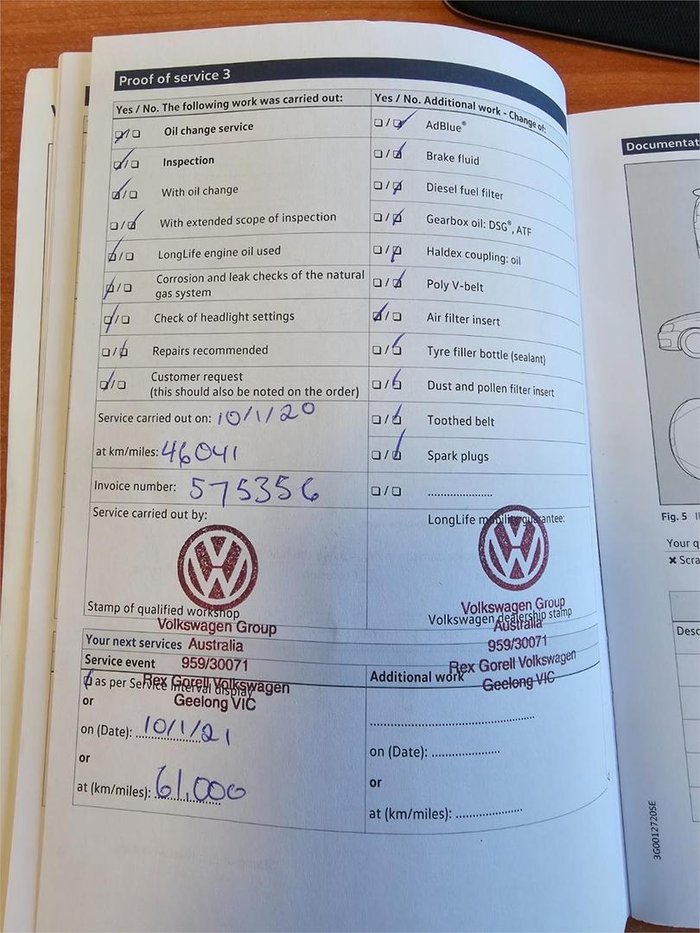 Proof of service 3
Yes / No. The following work was carried out:
Oil change service
Inspection
With oil change
With extended scope of inspection
LongLife engine oil used
Corrosion and leak checks of the natural
gas system
Check of headlight settings
Repairs recommended
Customer request
(this should also be noted on the order)
Service carried out on: 10/1/20
at km/miles: 46041
Invoice number: 575356
Service carried out by:
Stamp of qualified workshop
Volkswagen Group
Australia
959/30071
Rex Gorell Volkswagen
Geelong VIC
Yes / No. Additional work - Change of:
AdBlue®
Brake fluid
Diesel fuel filter
Gearbox oil: DSG®, ATF
Haldex coupling: oil
Poly V-belt
Air filter insert
Tyre filler bottle (sealant)
Dust and pollen filter insert
Toothed belt
Spark plugs
....................
LongLife mobility guarantee:
Volkswagen dealership stamp
Volkswagen Group
Australia
959/30071
Rex Gorell Volkswagen
Geelong VIC
Your next services
Service event
as per Service interval display
or
on (Date): 10/1/21
or
at (km/miles): 61,000
Additional work
....................
on (Date): ....................
or
at (km/miles): ....................
Documentat
Fig. 5
Your q
✖ Scra
Desc
3G0012720SE